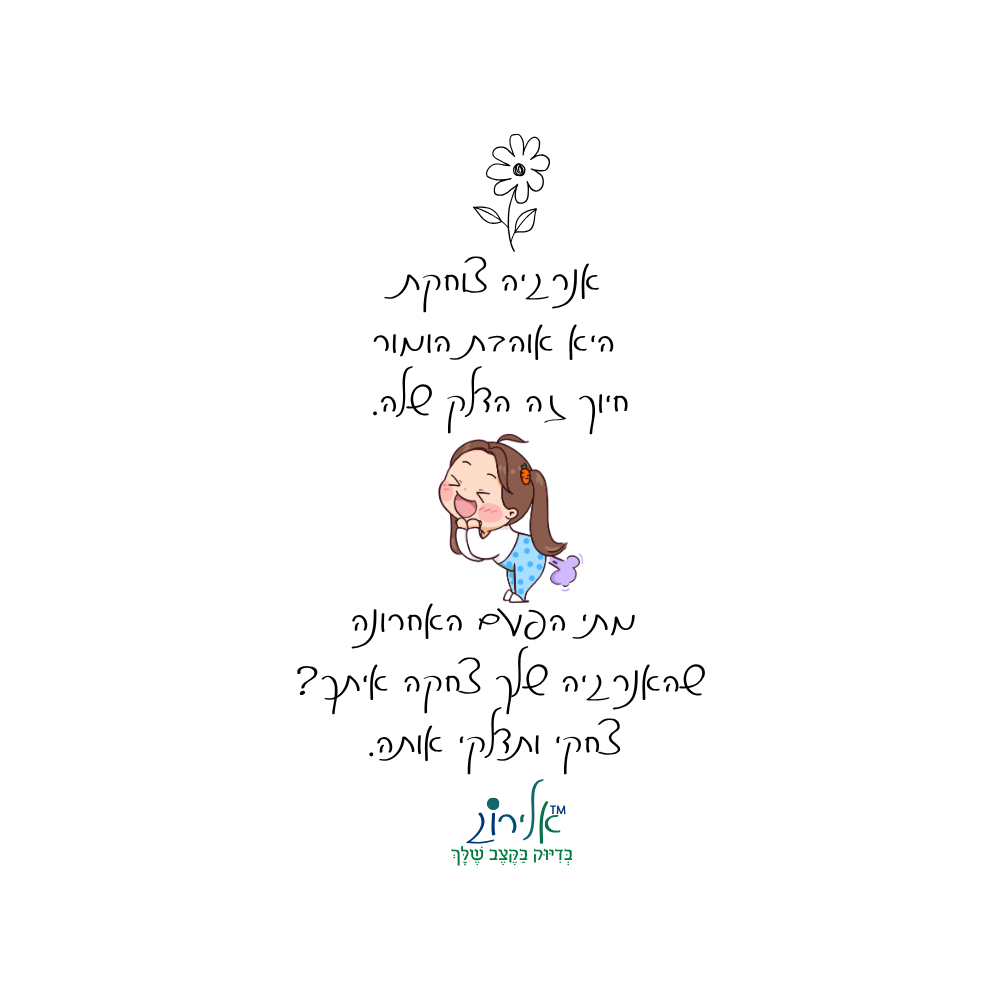 אנרגיה צוחקת
היא אוהבת הומור
חיוך זה הדלק שלה.
מתי הפעם האחרונה
שהאנרגיה שלך צחקה איתך?
צחקי ותדלקי אותה.
אלירוֹג TM
בְּדִיּוּק בַּקֶּצֶב שֶׁלָּךְ